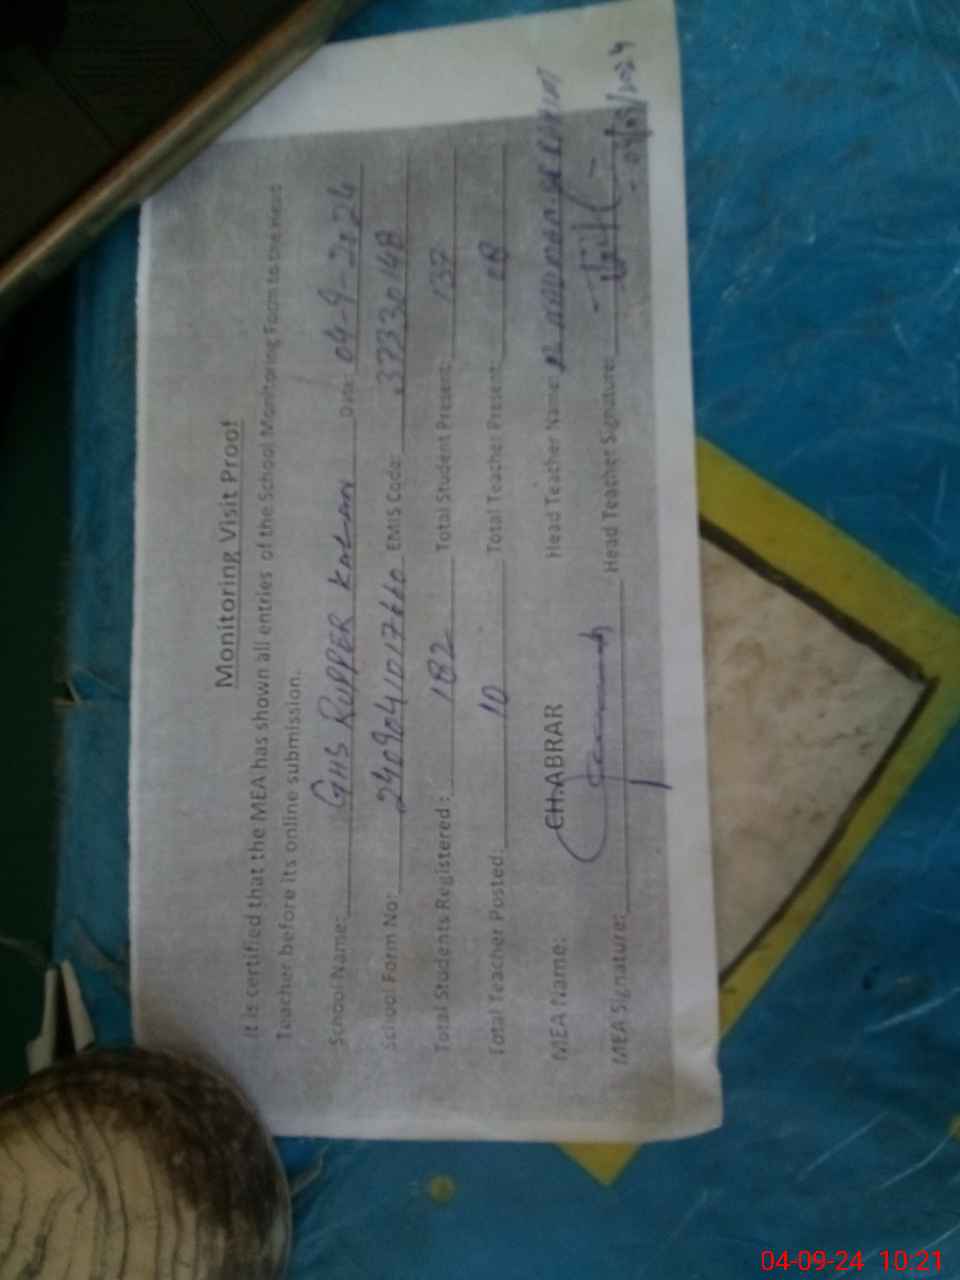 Monitoring Visit Proof
It is certified that the MEA has shown all entries of the School Monitoring Form to the Head
Teacher before its online submission.
School Name: GHS RUPPER KALAN Date: 04-9-2024
School Form No: 2409041017660 EMIS Code: 37330148
Total Students Registered: 182 Total Student Present: 137
Total Teacher Posted: 10 Total Teacher Present: 08
MEA Name: CH.ABRAR Head Teacher Name:
MEA Signature: Head Teacher Signature:
04/09/2024
04-09-24 10:21